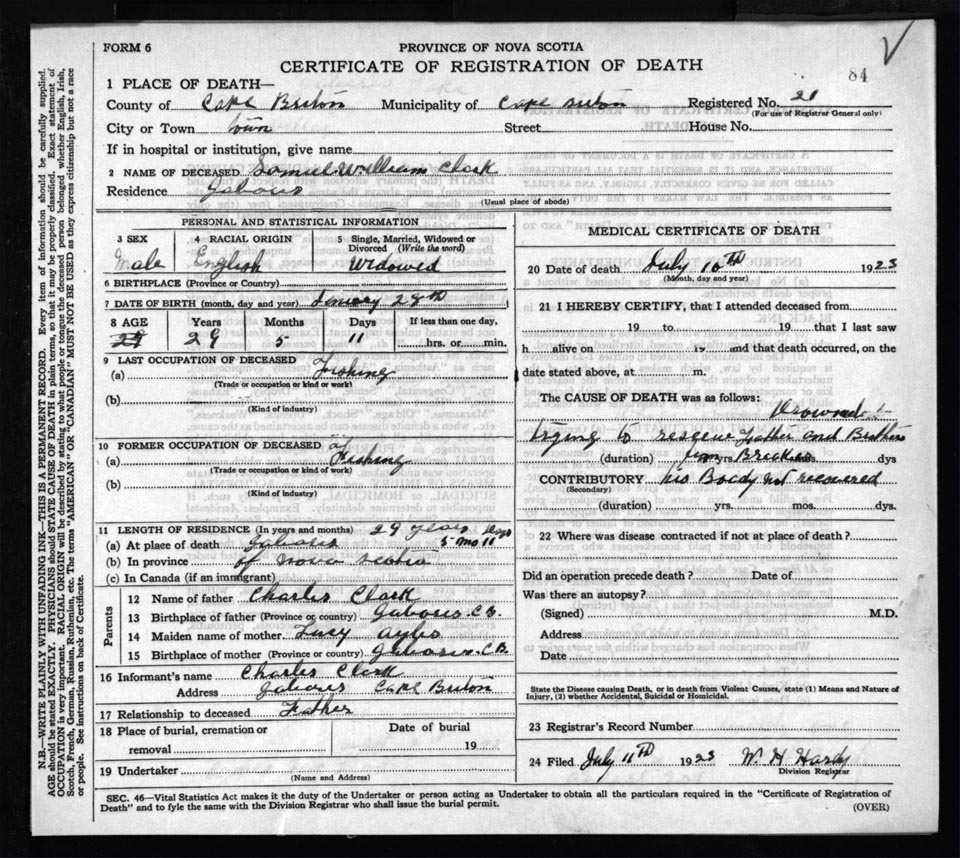 FORM 6
PROVINCE OF NOVA SCOTIA
CERTIFICATE OF REGISTRATION OF DEATH
84
1 PLACE OF DEATH—
County of Cape Briton Municipality of Cape Briton Registered No. 21
(For use of Registrar General only)
City or Town town Street House No.
If in hospital or institution, give name
2 NAME OF DECEASED Samuel William Clark
Residence Gabous
(Usual place of abode)
PERSONAL AND STATISTICAL INFORMATION
3 SEX 4 RACIAL ORIGIN 5 Single, Married, Widowed or Divorced (Write the word)
Male English Widowed
6 BIRTHPLACE (Province or Country)
7 DATE OF BIRTH (month, day and year) 28th
8 AGE Years Months Days If less than one day,
29 5 11 hrs. or min.
9 LAST OCCUPATION OF DECEASED
(a) Fishing
(Trade or occupation or kind or work)
(b)
(Kind of industry)
10 FORMER OCCUPATION OF DECEASED
(a) Fishing
(Trade or occupation or kind or work)
(b)
(Kind of industry)
11 LENGTH OF RESIDENCE (In years and months) 29 years days
(a) At place of death Gabous 5 mo 11
(b) In province of Nova Scotia
(c) In Canada (if an immigrant)
Parents
12 Name of father Charles Clark
13 Birthplace of father (Province or country) Gabous. C.B.
14 Maiden name of mother Lucy
15 Birthplace of mother (Province or country) Gabous. C.B.
16 Informant's name Charles Clark
Address Gabous Cape Briton
17 Relationship to deceased Father
18 Place of burial, cremation or removal Date of burial 19
19 Undertaker
(Name and Address)
MEDICAL CERTIFICATE OF DEATH
20 Date of death July 10th 1923
(Month, day and year)
21 I HEREBY CERTIFY, that I attended deceased from
19 to 19 that I last saw
h alive on 19 and that death occurred, on the
date stated above, at m.
The CAUSE OF DEATH was as follows:
Drowned
trying to rescue Father and Brothers
(duration) from yrs. Breakers mos. dys
CONTRIBUTORY his Boody not recovered
(Secondary)
(duration) yrs. mos. dys.
22 Where was disease contracted if not at place of death?
Did an operation precede death? Date of
Was there an autopsy?
(Signed) M.D.
Address
Date
State the Disease causing Death, or in death from Violent Causes, state (1) Means and Nature of
Injury, (2) whether Accidental, Suicidal or Homicidal.
23 Registrar's Record Number
24 Filed July 11th 1923 W. H Hardy
Division Registrar
SEC. 46—Vital Statistics Act makes it the duty of the Undertaker or person acting as Undertaker to obtain all the particulars required in the "Certificate of Registration of
Death" and to fyle the same with the Division Registrar who shall issue the burial permit.
(OVER)
N.B.—WRITE PLAINLY WITH UNFADING INK—THIS IS A PERMANENT RECORD. Every item of information should be carefully supplied.
AGE should be stated EXACTLY. PHYSICIANS should STATE CAUSE OF DEATH in plain terms, so that it may be properly classified. Exact statement of
OCCUPATION is very important. RACIAL ORIGIN will be described by stating to what people or tongue the deceased person belonged, whether English, Irish,
Scotch, French, German, Russian, Ruthenian, etc. The terms "AMERICAN" OR "CANADIAN" MUST NOT BE USED as they express citizenship but not a race
or people. See instructions on back of Certificate.